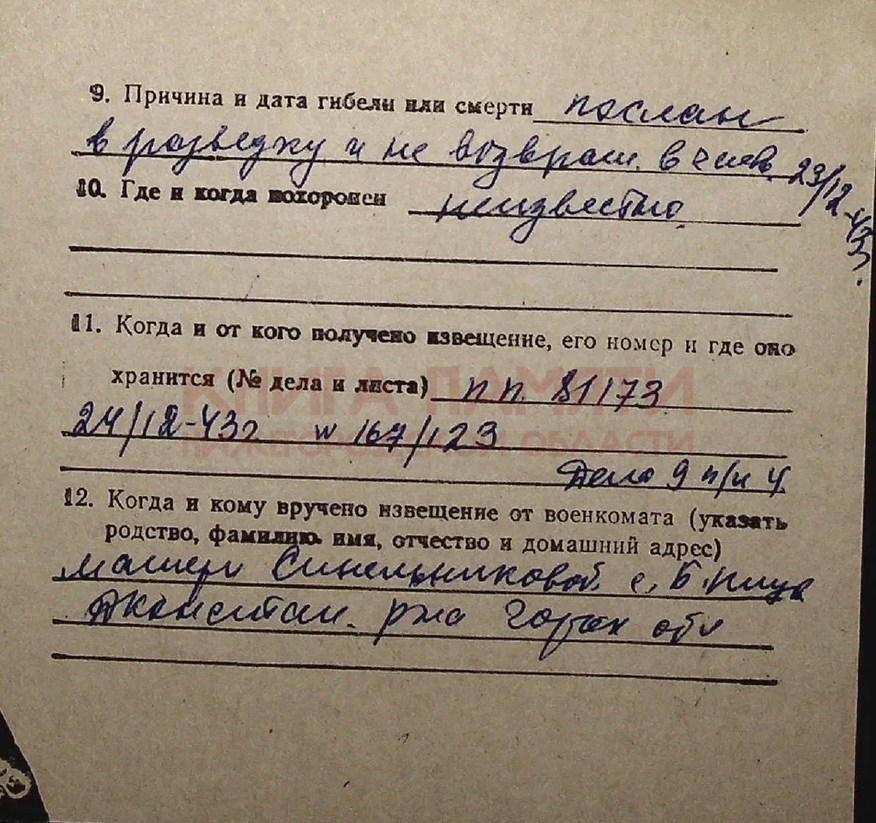 9. Причина и дата гибели или смерти послан
в разведку и не возвращ. в часть 23/12-43г.
10. Где и когда похоронен неизвестно
11. Когда и от кого получено извещение, его номер и где оно
хранится (№ дела и листа) п.п. 81173
КНИГА ПАМЯТИ
24/12-43г. № 167/123
НИЖЕГОРОДСКОЙ ОБЛАСТИ
Дело 9 п/н 4
12. Когда и кому вручено извещение от военкомата (указать
родство, фамилию, имя, отчество и домашний адрес)
матери Синельниковой с.
рна Горьк обл